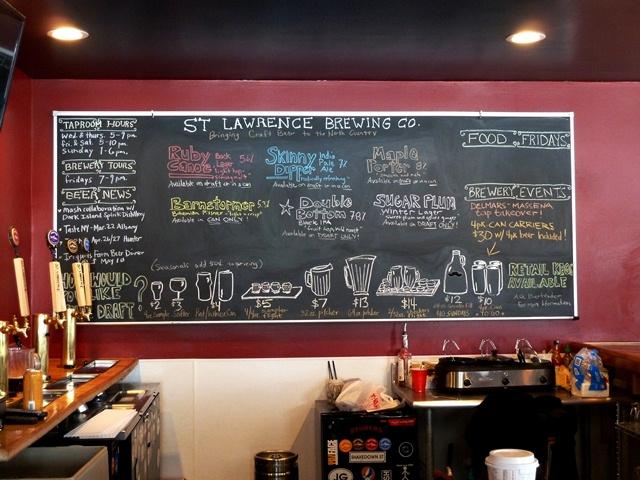 ST LAWRENCE BREWING CO.
Bringing Craft Beer to the North Country
TAPROOM HOURS
Wed & thurs. 5-9pm
fri. & Sat. 5-10pm
Sunday 1-6pm
BREWERY TOURS
fridays 7-9pm
BEER NEWS
mash collaboration w/
Dark Island Spirits Distillery
Taste NY - Mar. 22 Albany
Apr. 26/27 Hunter
Farm Beer Dinner
May 10
HOW WOULD
YOU LIKE
DRAFT?
Ruby Bock
Canoe Lager
Available on draft or in a can
Skinny India
Dipper Pale Ale
Available on draft or in a can
Maple
Porter
Available on draft or in a can
Barnstormer
Bohemian Pilsner
Available in CAN ONLY!
Double
Bottom
Black IPA
Available on DRAFT ONLY!
SUGAR PLUM
Winter Lager
Available on DRAFT ONLY!
FOOD FRIDAYS
BREWERY EVENTS
DELMAR'S - MASSENA
tap takeover!
4pk CAN CARRIERS
$30 w/ 4pk beer included!
RETAIL KEGS
AVAILABLE
Ask Bartender
for more information
$2 $3 $4 $5 $7 $13 $14 $12 $10
32oz pitcher
64oz pitcher
SHAKEDOWN ST
JG